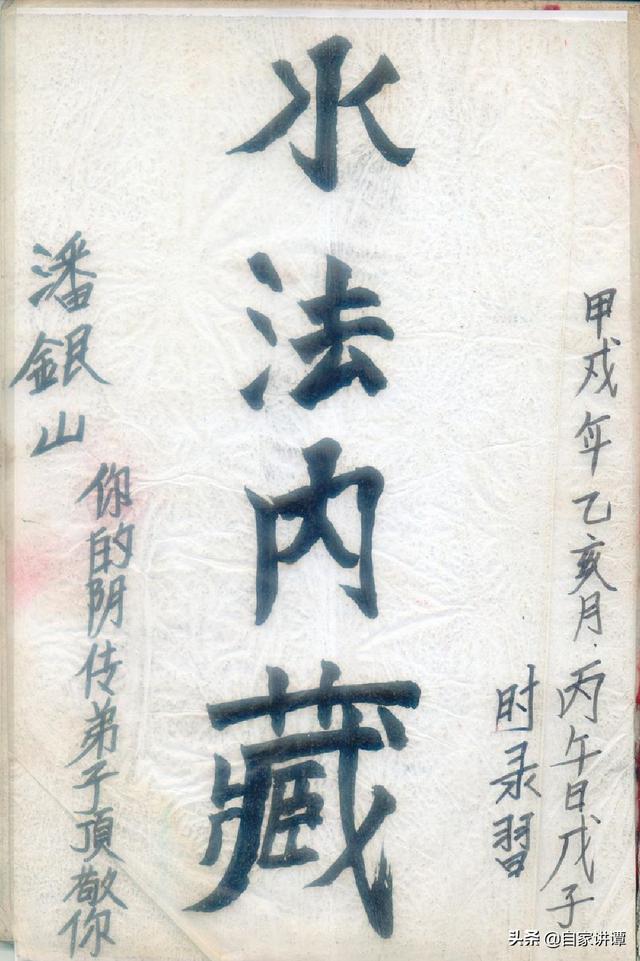 甲戌年乙亥月.丙午日戊子
时录習
水法内藏
潘銀山
你的阴传弟子頂敬你
头条 @自家讲谭